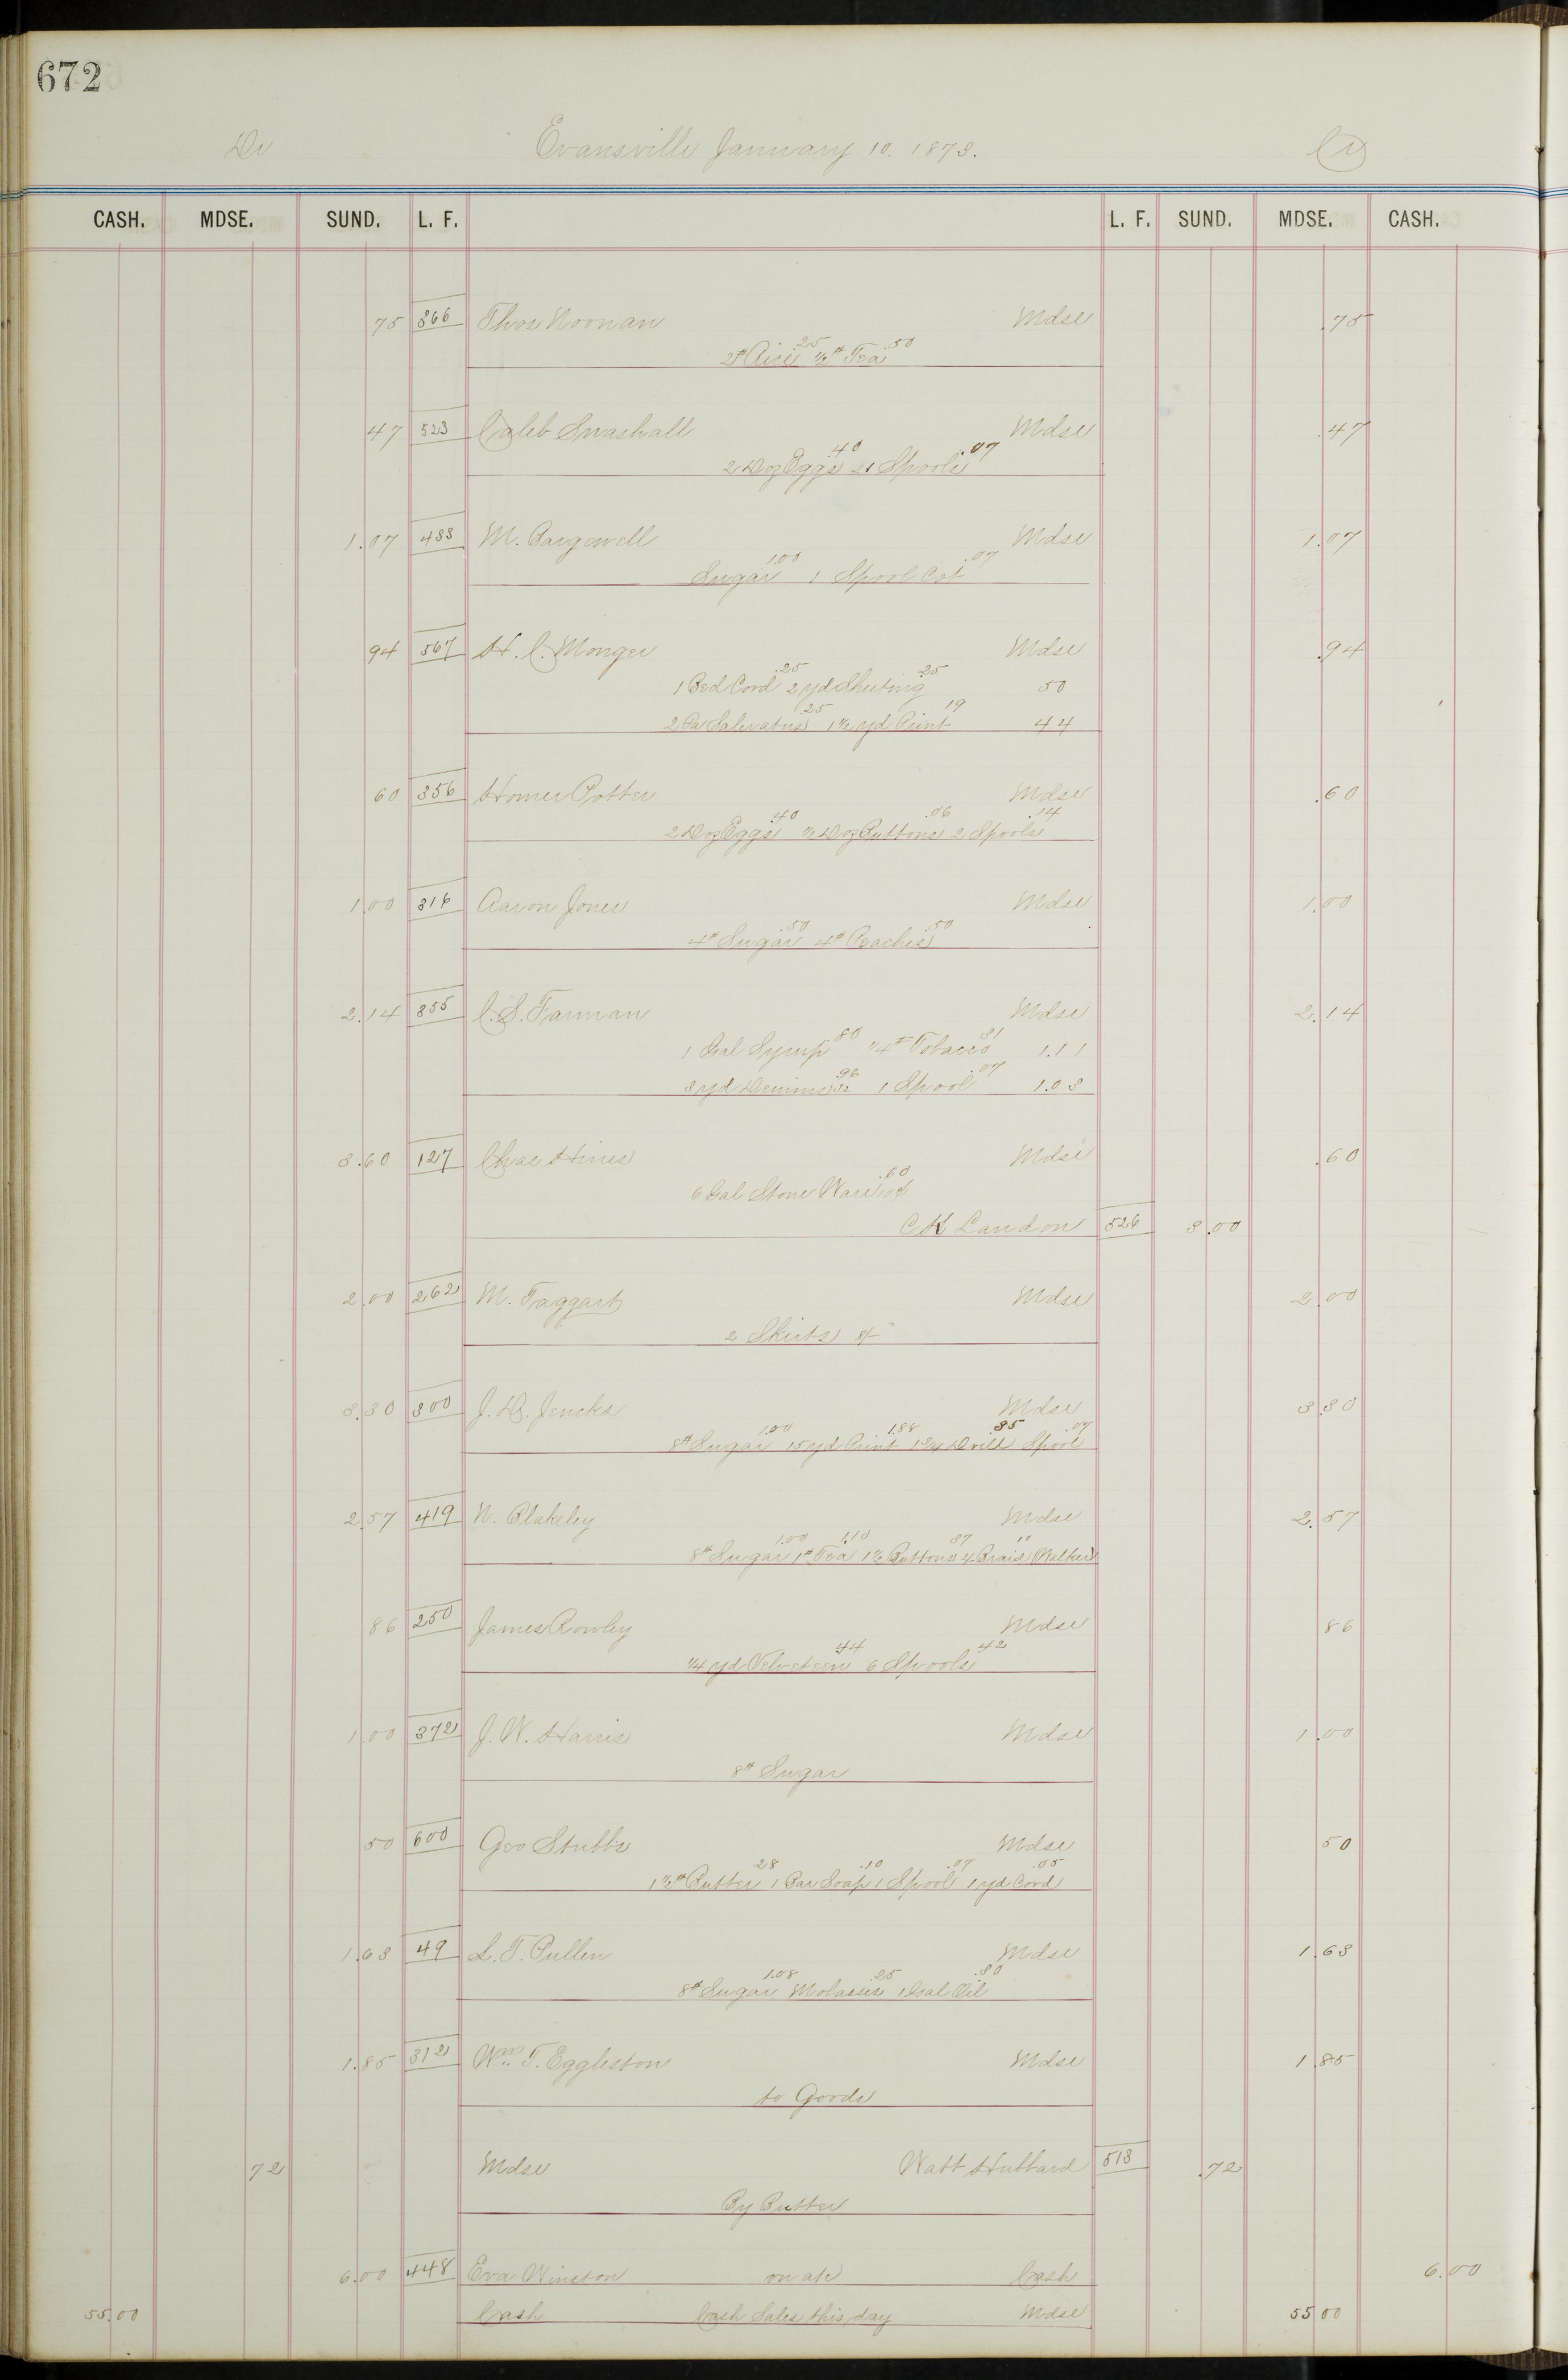 672
Dr Evansville January 10. 1873. Cr
CASH. MDSE. SUND. L. F. L. F. SUND. MDSE. CASH.
75 366 Thos Noonan Mdse .75
2# Rice .25 1/2# Tea .50
47 523 Caleb Snashall Mdse .47
2 Doz Eggs .40 1 Spools .07
1.07 433 M. Mdse 1.07
Sugar 1.00 1 Spool Cot .07
94 567 H. C. Monger Mdse .94
1 Bed Cord .25 2 yd Sheeting .25 50
2 Pa Saleratus .25 1 1/2 yd Print 19 44
60 356 Homer Potter Mdse .60
2 Doz Eggs .40 1/2 Doz Buttons .06 2 Spools .14
1.00 316 Aaron Jones Mdse 1.00
4# Sugar .50 4# Peaches .50
2.14 355 C. S. Farman Mdse 2.14
1 Gal Syrup 80 3/4# Tobacco 31 1.11
3 yd Denims 32 .96 1 Spool .07 1.03
3.60 127 Chas Hines Mdse .60
6 Gal Stone Ware 10¢ .60
C K Landon 526 3.00
2.00 262 M. Taggart Mdse 2.00
2 Shirts 8/-
3.30 300 J. D. Jencks Mdse 3.30
8# Sugar 1.00 15 yd Print 1.88 1 3/4 Drill .35 Spool .07
2.57 419 N. Blakeley Mdse 2.57
8# Sugar 1.00 1# Tea 1.10 1 1/2 Buttons 37 4 Braid 10 (Walker)
86 250 James Rowley Mdse 86
1/4 yd Velveteen 44 6 Spools .42
1.00 372 J. W. Harris Mdse 1.00
8# Sugar
50 600 Geo Stubbs Mdse 50
1 1/2# Butter 28 1 Bar Soap .10 1 Spool .07 1 yd Cord .05
1.63 49 L. T. Pullen Mdse 1.63
8# Sugar 1.08 Molasses .25 1 Gal Oil .30
1.85 312 Wm T. Eggleston Mdse 1.85
to Goods
72 Mdse Watt Hubbard 513 .72
By Butter
6.00 448 Eva Winston on a/c Cash 6.00
55.00 Cash Cash Sales this day Mdse 55.00